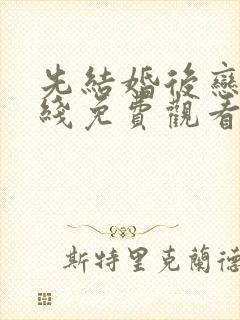 先結婚後戀
綫免費觀看
斯特里克蘭德